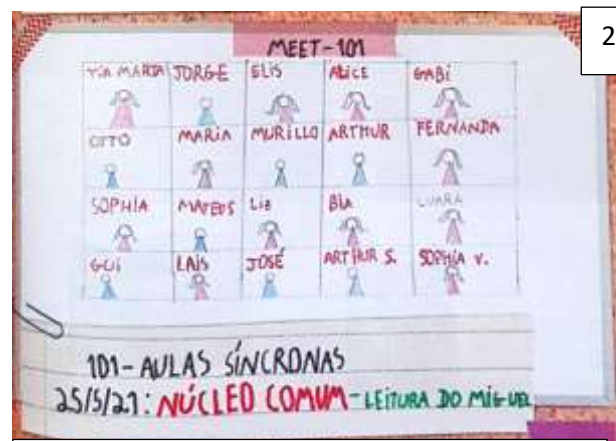 2
MEET-101
TIA MARTA JORGE ELIS ALICE GABI
OTTO MARIA MURILLO ARTHUR FERNANDA
SOPHIA MATEUS LIZ BIA LUARA
GUI LAIS JOSÉ ARTHUR S. SOPHIA V.
101-AULAS SÍNCRONAS
25/5/21: NÚCLEO COMUM-LEITURA DO MIGUEL